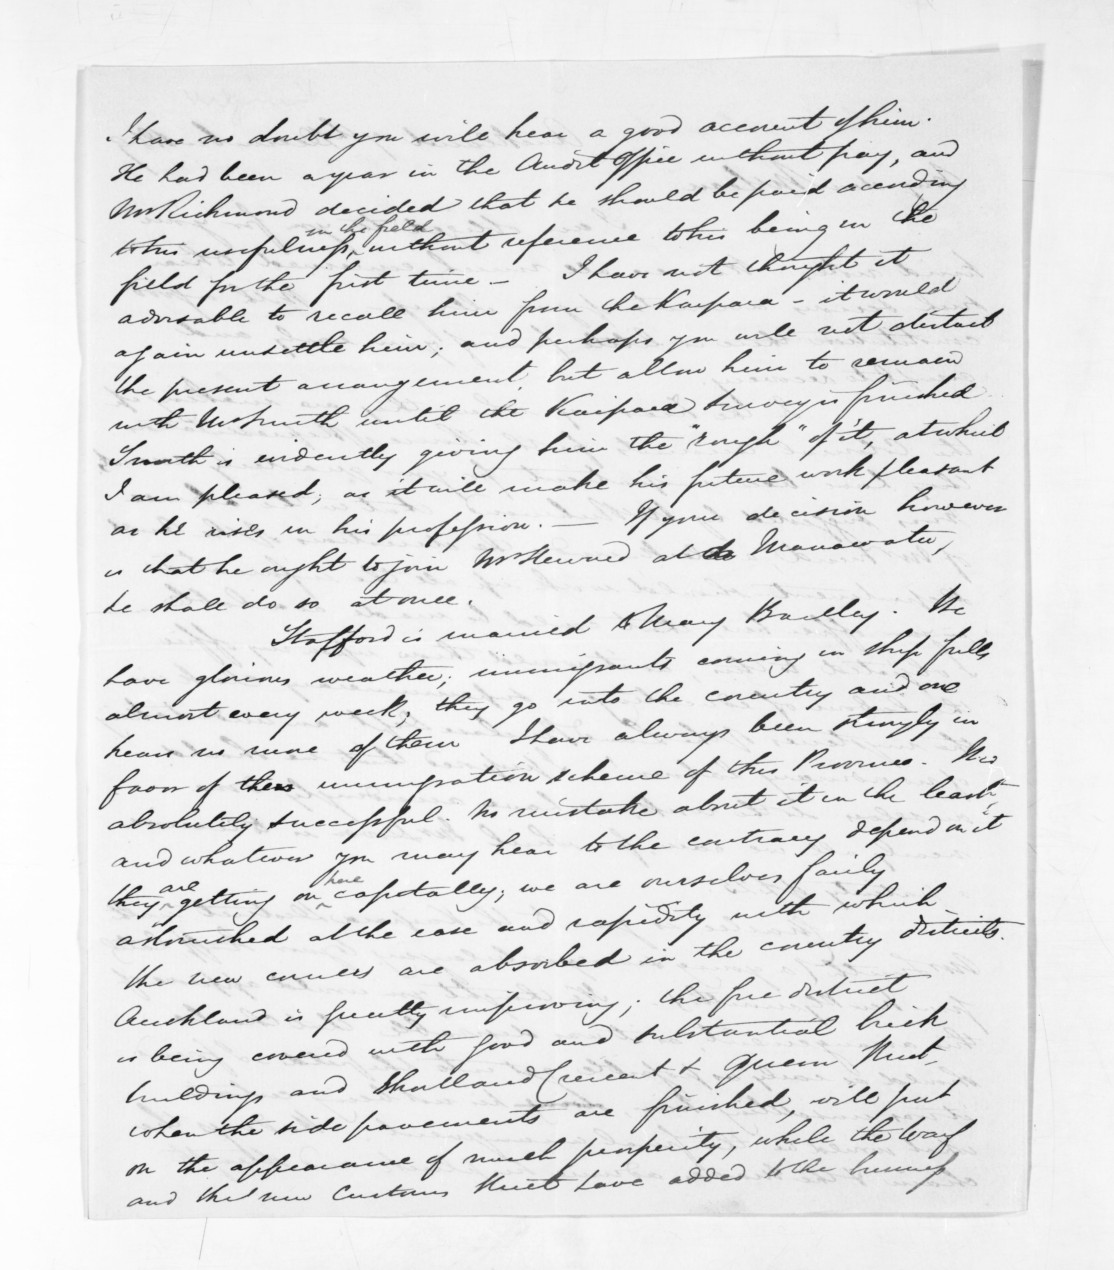 I have no doubt you will hear a good account of him.
He had been a year in the Audit Office without pay, and
Mr Richmond decided that he should be paid according
to his usefulness in the field, without reference to his being in the
field for the first time — I have not thought it
advisable to recall him from the Kaipara — it would
again unsettle him; and perhaps you will not disturb
the present arrangement, but allow him to remain
with Mr Smith until the Kaipara Survey is finished
Smith is evidently giving him the "rough" of it, at which
I am pleased; as it will make his future work pleasant
as he rises in his profession. — If your decision however
is that he ought to join Mr Steward at Manawatu,
he shall do so at once.
Stafford is married to Mary Bartley. We
have glorious weather; immigrants coming in ship fulls
almost every week; they go into the country and one
hears no more of them I have always been strongly in
favor of the immigration scheme of this Province. It is
absolutely successful. No mistake about it in the least,
and whatever you may hear to the contrary depend on it
they are getting on here capitally; we are ourselves fairly
astonished at the ease and rapidity with which
the new comers are absorbed in the country districts.
Auckland is greatly improving; the fire district
is being covered with good and substantial brick
buildings and Shortland Crescent & Queen Street,
when the side pavements are finished, will put
on the appearance of much prosperity, while the Wharf
and the new Customs Street have added to the business